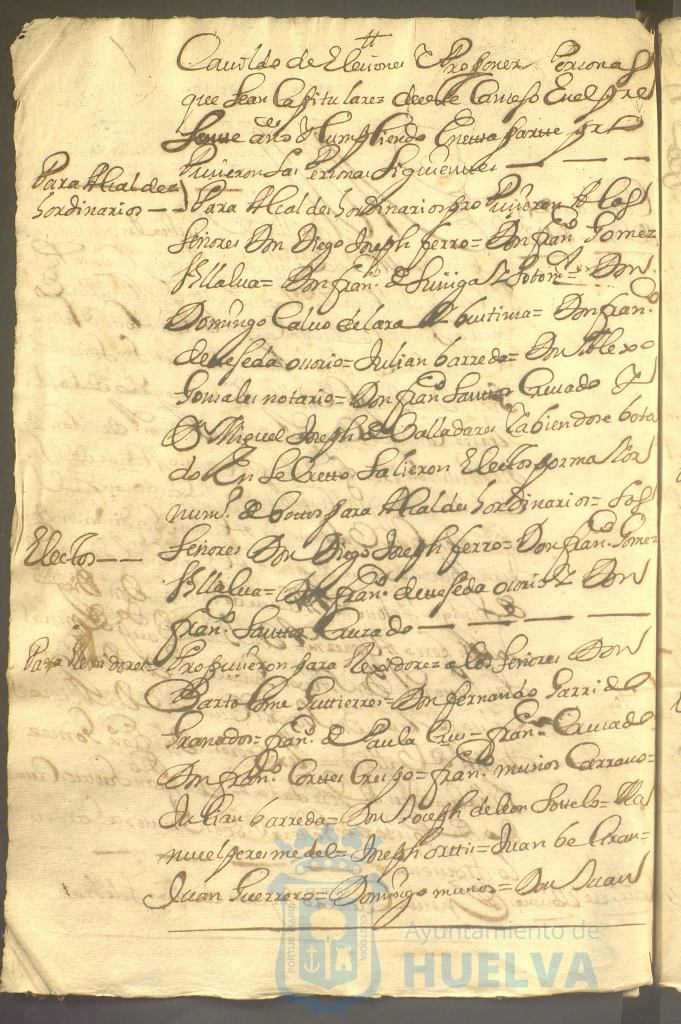 Cavildo de Eleciones & Proponer Personas
que sean Capitulares de este Conceso En el pre
sente año & Cumpliendo En esta partte pro
Pusieron las Personas siguienttes — — —
Para Alcaldes
hordinarios —
Para Alcaldes hordinarios pro Pusieron A los
señores Don Diego Joseph fierro = Don fran.co Gomez
Villalua = Don fran.co de Suniga & Sotom.r = Don
Domingo Calvo de lara = Don fran.co
de Zeseda ossorio = Julian barreda = Don
Gonsales notario = Don fran.co Santtos Cruzado &
D.n Miguel Joseph de Valladares & abiendose bota
do En Secretto salieron Electos por maior
num.o de bottos para Alcaldes hordinarios = los
Electos —
señores Don Diego Joseph fierro = Don fran.co Gomez
Villalua = Don fran.co de Zeseda ossorio & Don
fran.co Santtos Cruzado — — — — —
Para Rexidores =
Propusieron para Rexidores a los señores Don
Bartolome Guttierres = Don fernando Garrido
Granados = fran.co de Paula Cruz = fran.co Cruzado
Don fran.co Corttes Crespo = fran.co muños Carrasco =
Julian barreda = Don Joseph de leon Sottelo = Ma
nuel peres medel = Joseph orttis = Juan be
Juan Guerrero = Domingo muños = Don Juan
PORTUS MARIS
CUSTODIA
Ayuntamiento de
HUELVA